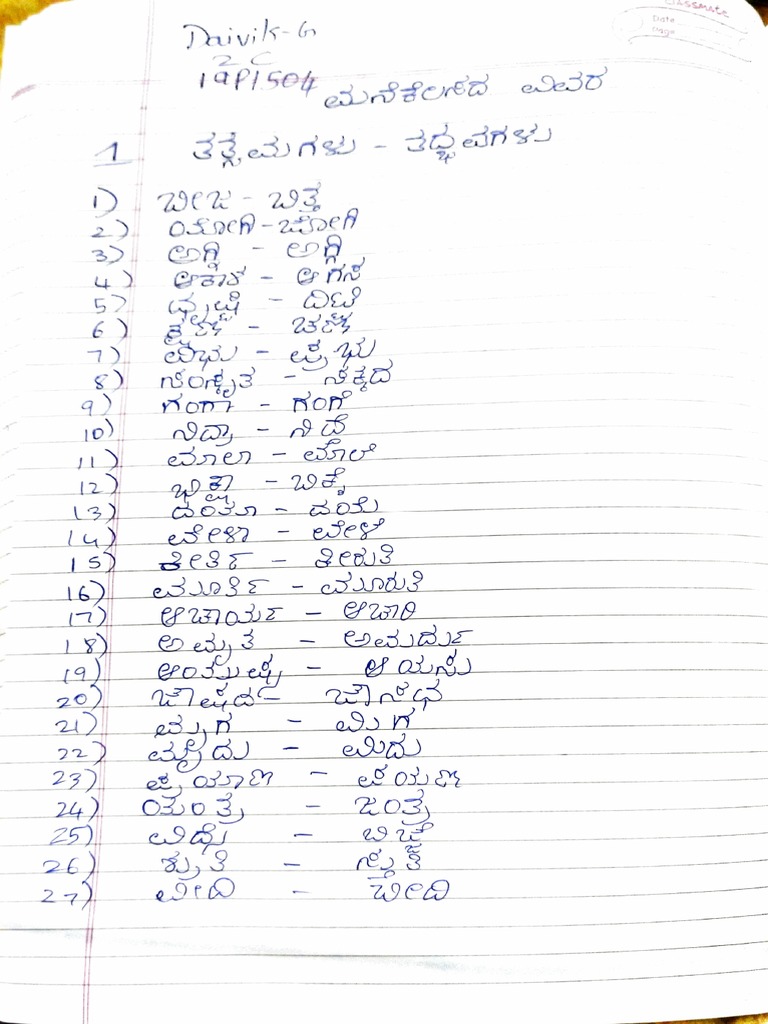 classmate
Date
Page
Daivik-G
2 C
19P1504
ಮನೆಕೆಲಸದ ವಿವರ
1 ತತ್ಸಮಗಳು - ತದ್ಭವಗಳು
1) ಬೀಜ - ಬಿತ್ತ
2) ಯೋಗಿ - ಜೋಗಿ
3) ಅಗ್ನಿ - ಅಗ್ಗಿ
4) ಆಕಾಶ - ಆಗಸ
5) ದೃಷ್ಟಿ - ದಿಟಿ
6)
7) - ಪ್ರಭು
8) ಸಂಸ್ಕೃತ - ಸಕ್ಕದ
9) ಗಂಗಾ - ಗಂಗೆ
10) ನಿದ್ರಾ - ನಿದೆ
11) ಮಾಲಾ - ಮಾಲೆ
12) ಭಿಕ್ಷಾ - ಬಿಕ್ಕೆ
13)
14) ವೇಳಾ - ವೇಳೆ
15) ಕೀರ್ತಿ - ಕೀರುತಿ
16) ಮೂರ್ತಿ - ಮೂರುತಿ
17) ಆಚಾರ್ಯ - ಆಚಾರಿ
18) ಅಮೃತ - ಅಮರ್ದು
19) - ಆಯಸು
20)
21) ಮೃಗ - ಮಿಗ
22) ಮೃದು - ಮಿದು
23) ಪ್ರಯಾಣ - ಪಯಣ
24) ಯಂತ್ರ - ಜಂತ್ರ
25) ವಿದ್ಯೆ - ಬಿಜ್ಜೆ
26) ಶ್ರುತಿ - ಸ್ತುತಿ
27) ವೀದಿ - ಬೀದಿ